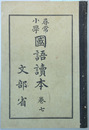 尋常
小學
國語讀本 卷七
文部省